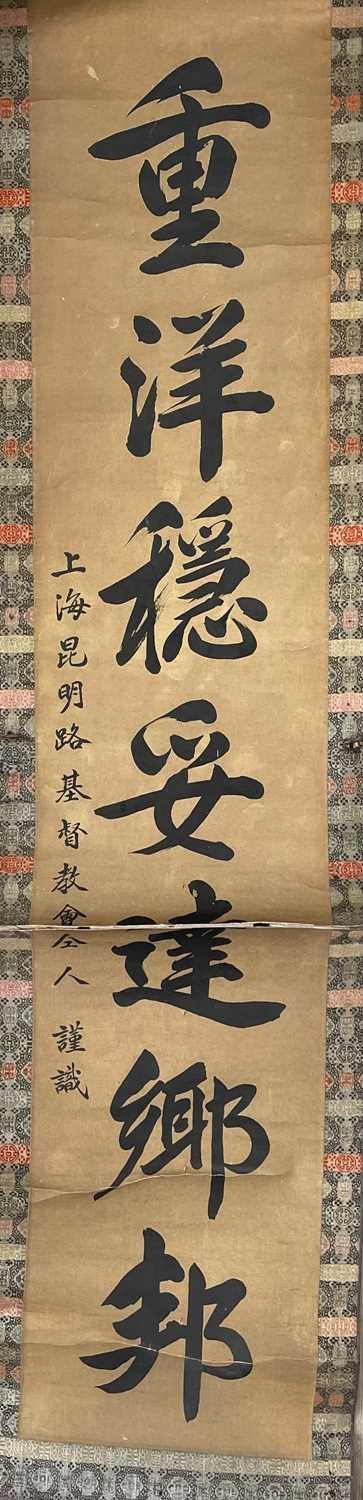 重洋穩妥達鄉邦
上海昆明路基督教會仝人 謹識